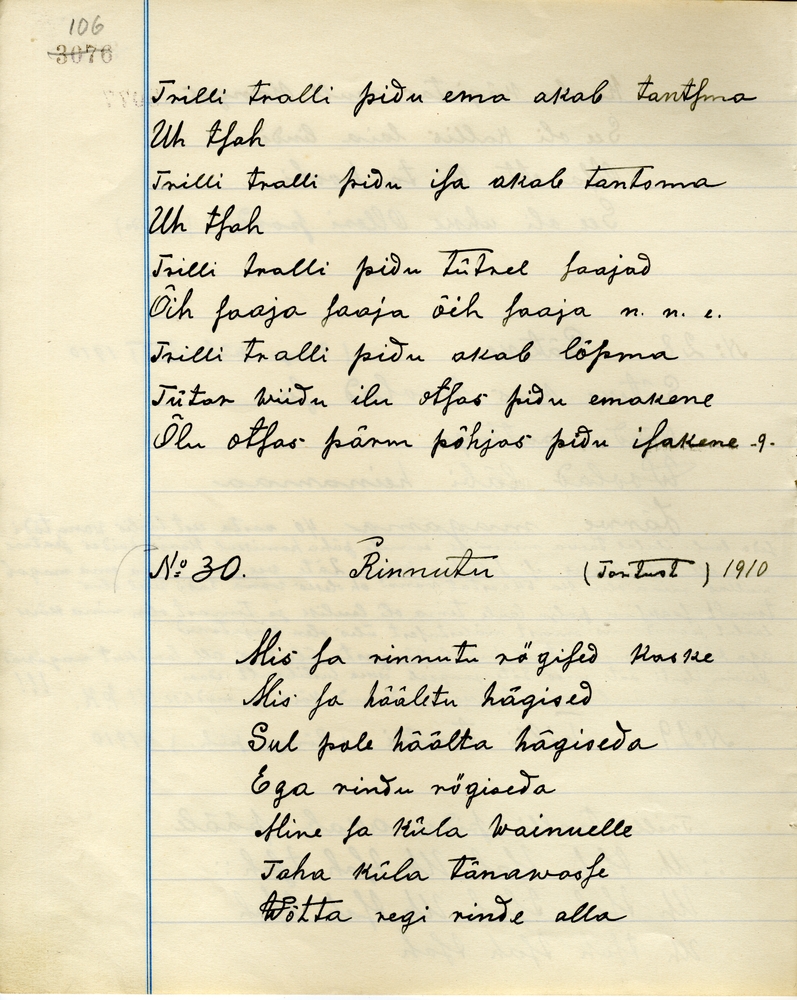 106
3076
Trilli tralli pidu ema akab tantsma
Uh tsah
Trilli tralli pidu isa akab tantsma
Uh tsah
Trilli tralli pidu tütrel saajad
Õih saaja saaja õih saaja n. n. e.
Trilli tralli pidu akab lõpma
Tütar wiidu ilu otsas pidu emakene
Õlu otsas pärm põhjas pidu isakene -9-
No 30. Rinnutu ( ) 1910
Mis sa rinnutu rögised kaske
Mis sa hääletu hägised
Sul pole häälta hägiseda
Ega rindu rögiseda
Mine sa küla wainuelle
Taha küla tänawasse
Wõtta regi rinde alla